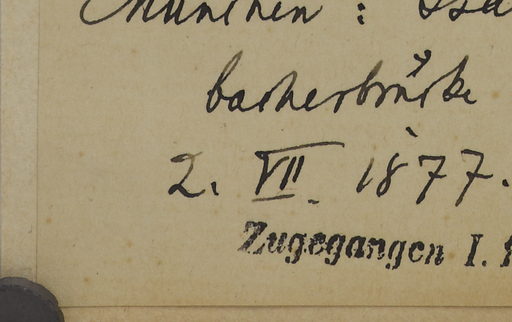 München : Isa
bacherbrücke
2. VII. 1877.
Zugegangen I.